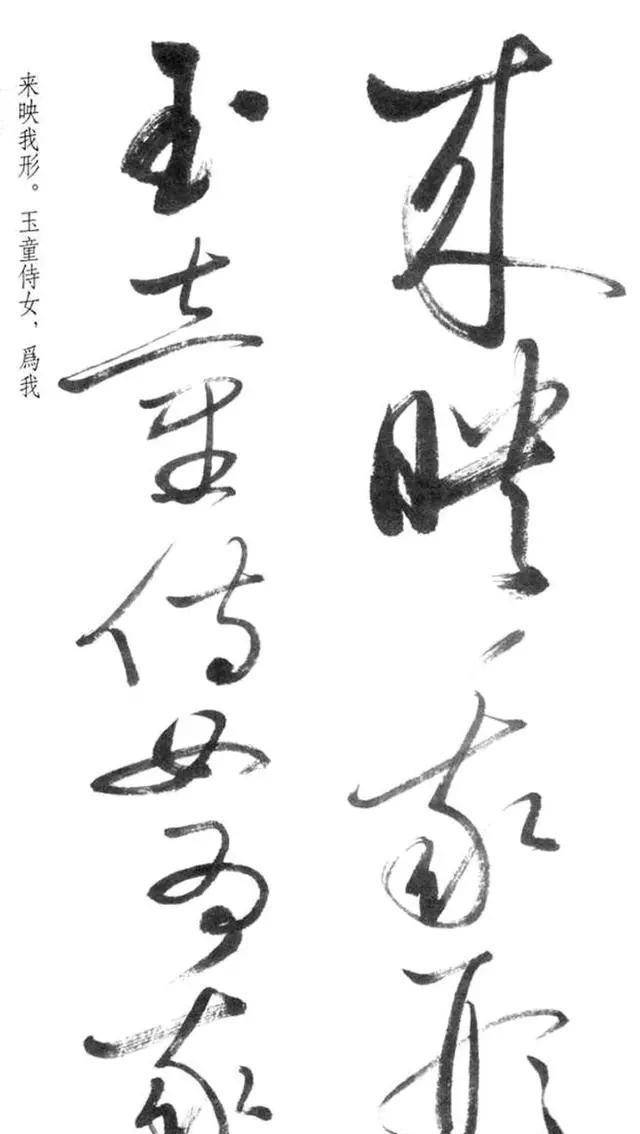 来映我形
玉童侍女爲我
来映我形。玉童侍女，爲我